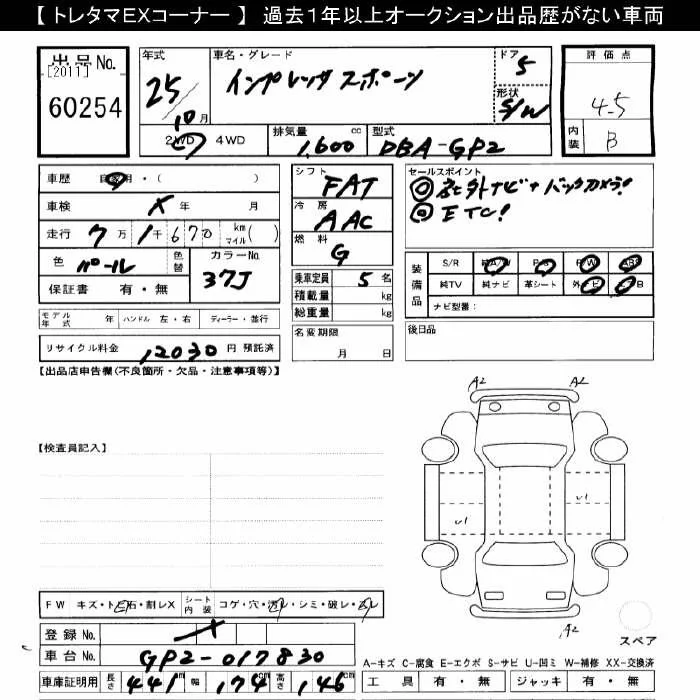 【 トレタマEXコーナー 】 過去１年以上オークション出品歴がない車両
出品No. [2011] 60254
年式 25/10月
車名・グレード インプレッサ スポーツ
ドア 5
形状 S/W
評価点 4.5
内装 B
2WD 4WD
排気量 1,600 cc
型式 DBA-GP2
車歴 自家用・( )
車検 X 年 月
走行 7万1千670 km マイル( )
色 パール 色替 カラーNo. 37J
保証書 有・無
シフト FAT
冷房 AAC
燃料 G
乗車定員 5 名
積載量 kg
総重量 kg
セールスポイント
◎社外ナビ+バックカメラ!
◎ETC!
装備品 S/R 純A/W P/S P/W ABS
純TV 純ナビ 革シート 外ナビ
ナビ型番:
モデル年式 年 ハンドル 左・右 ディーラー・並行
名変期限 月 日
後日品
リサイクル料金 12030 円 預託済
【出品店申告欄(不良箇所・欠品・注意事項等)】
A2 A2
【検査員記入】
U1
U1
A2
FW キズ・ト石・割レX シート内装 コゲ・穴・汚レ・シミ・破レ・
スペア
登録 No. X
車台 No. GP2-017830
A-キズ C-腐食 E-エクボ S-サビ U-凹ミ W-補修 XX-交換済
車庫証明用 長さ 441 cm 幅 174 cm 高さ 146 cm
工具 有・無 ジャッキ 有・無